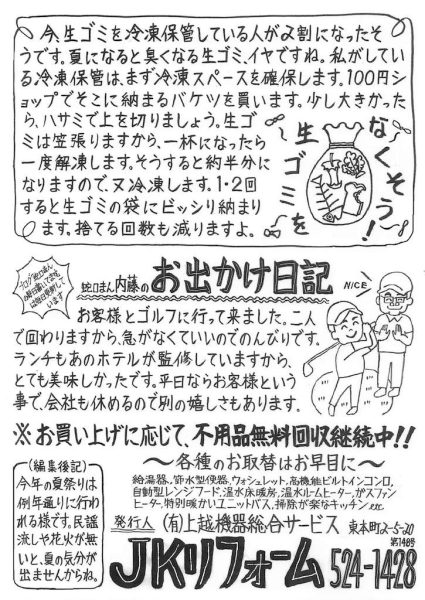 今、生ゴミを冷凍保管している人が2割になったそ
うです。夏になると臭くなる生ゴミ、イヤですね。私がしてい
る冷凍保管は、まず冷凍スペースを確保します。100円シ
ョップでそこに納まるバケツを買います。少し大きかった
ら、ハサミで上を切りましょう。生ゴ
ミは笠張りますから、一杯になったら
一度解凍します。そうすると約半分に
なりますので、又冷凍します。1・2回
すると生ゴミの袋にビッシリ納まり
ます。捨てる回数も減りますよ。
生ゴミを
なくそう!
蛇口まん内藤のお出かけ日記
NICE
お客様とゴルフに行って来ました。二人
で回わりますから、急がなくていいのでのんびりです。
ランチもあのホテルが監修していますから、
とても美味しかったです。平日ならお客様という
事で、会社も休めるので別の嬉しさもあります。
※お買い上げに応じて、不用品無料回収継続中!!
〜各種のお取替はお早目に〜
給湯器、節水型便器、ウォシュレット、高機能ビルトインコンロ、
自動型レンジフード、温水床暖房、温水ルームヒーター、ガスファン
ヒーター、特別暖かいユニットバス、掃除が楽なキッチンetc
(編集後記)
今年の夏祭りは
例年通りに行わ
れる様です。民謡
流しや花火が無
いと、夏の気分が
出ませんからね。
発行人 (有)上越機器総合サービス 東本町2-5-20
第148号
JKリフォーム 524-1428